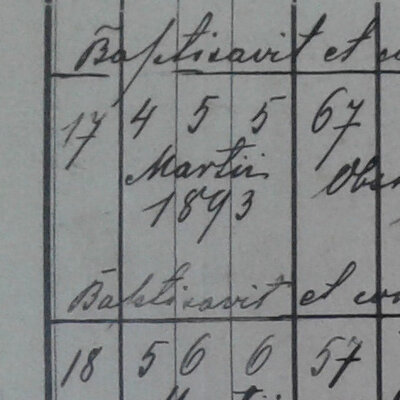 Baptisavit et
17 4 5 5 67
Martii
1893
Baptisavit et
18 5 6 6 57